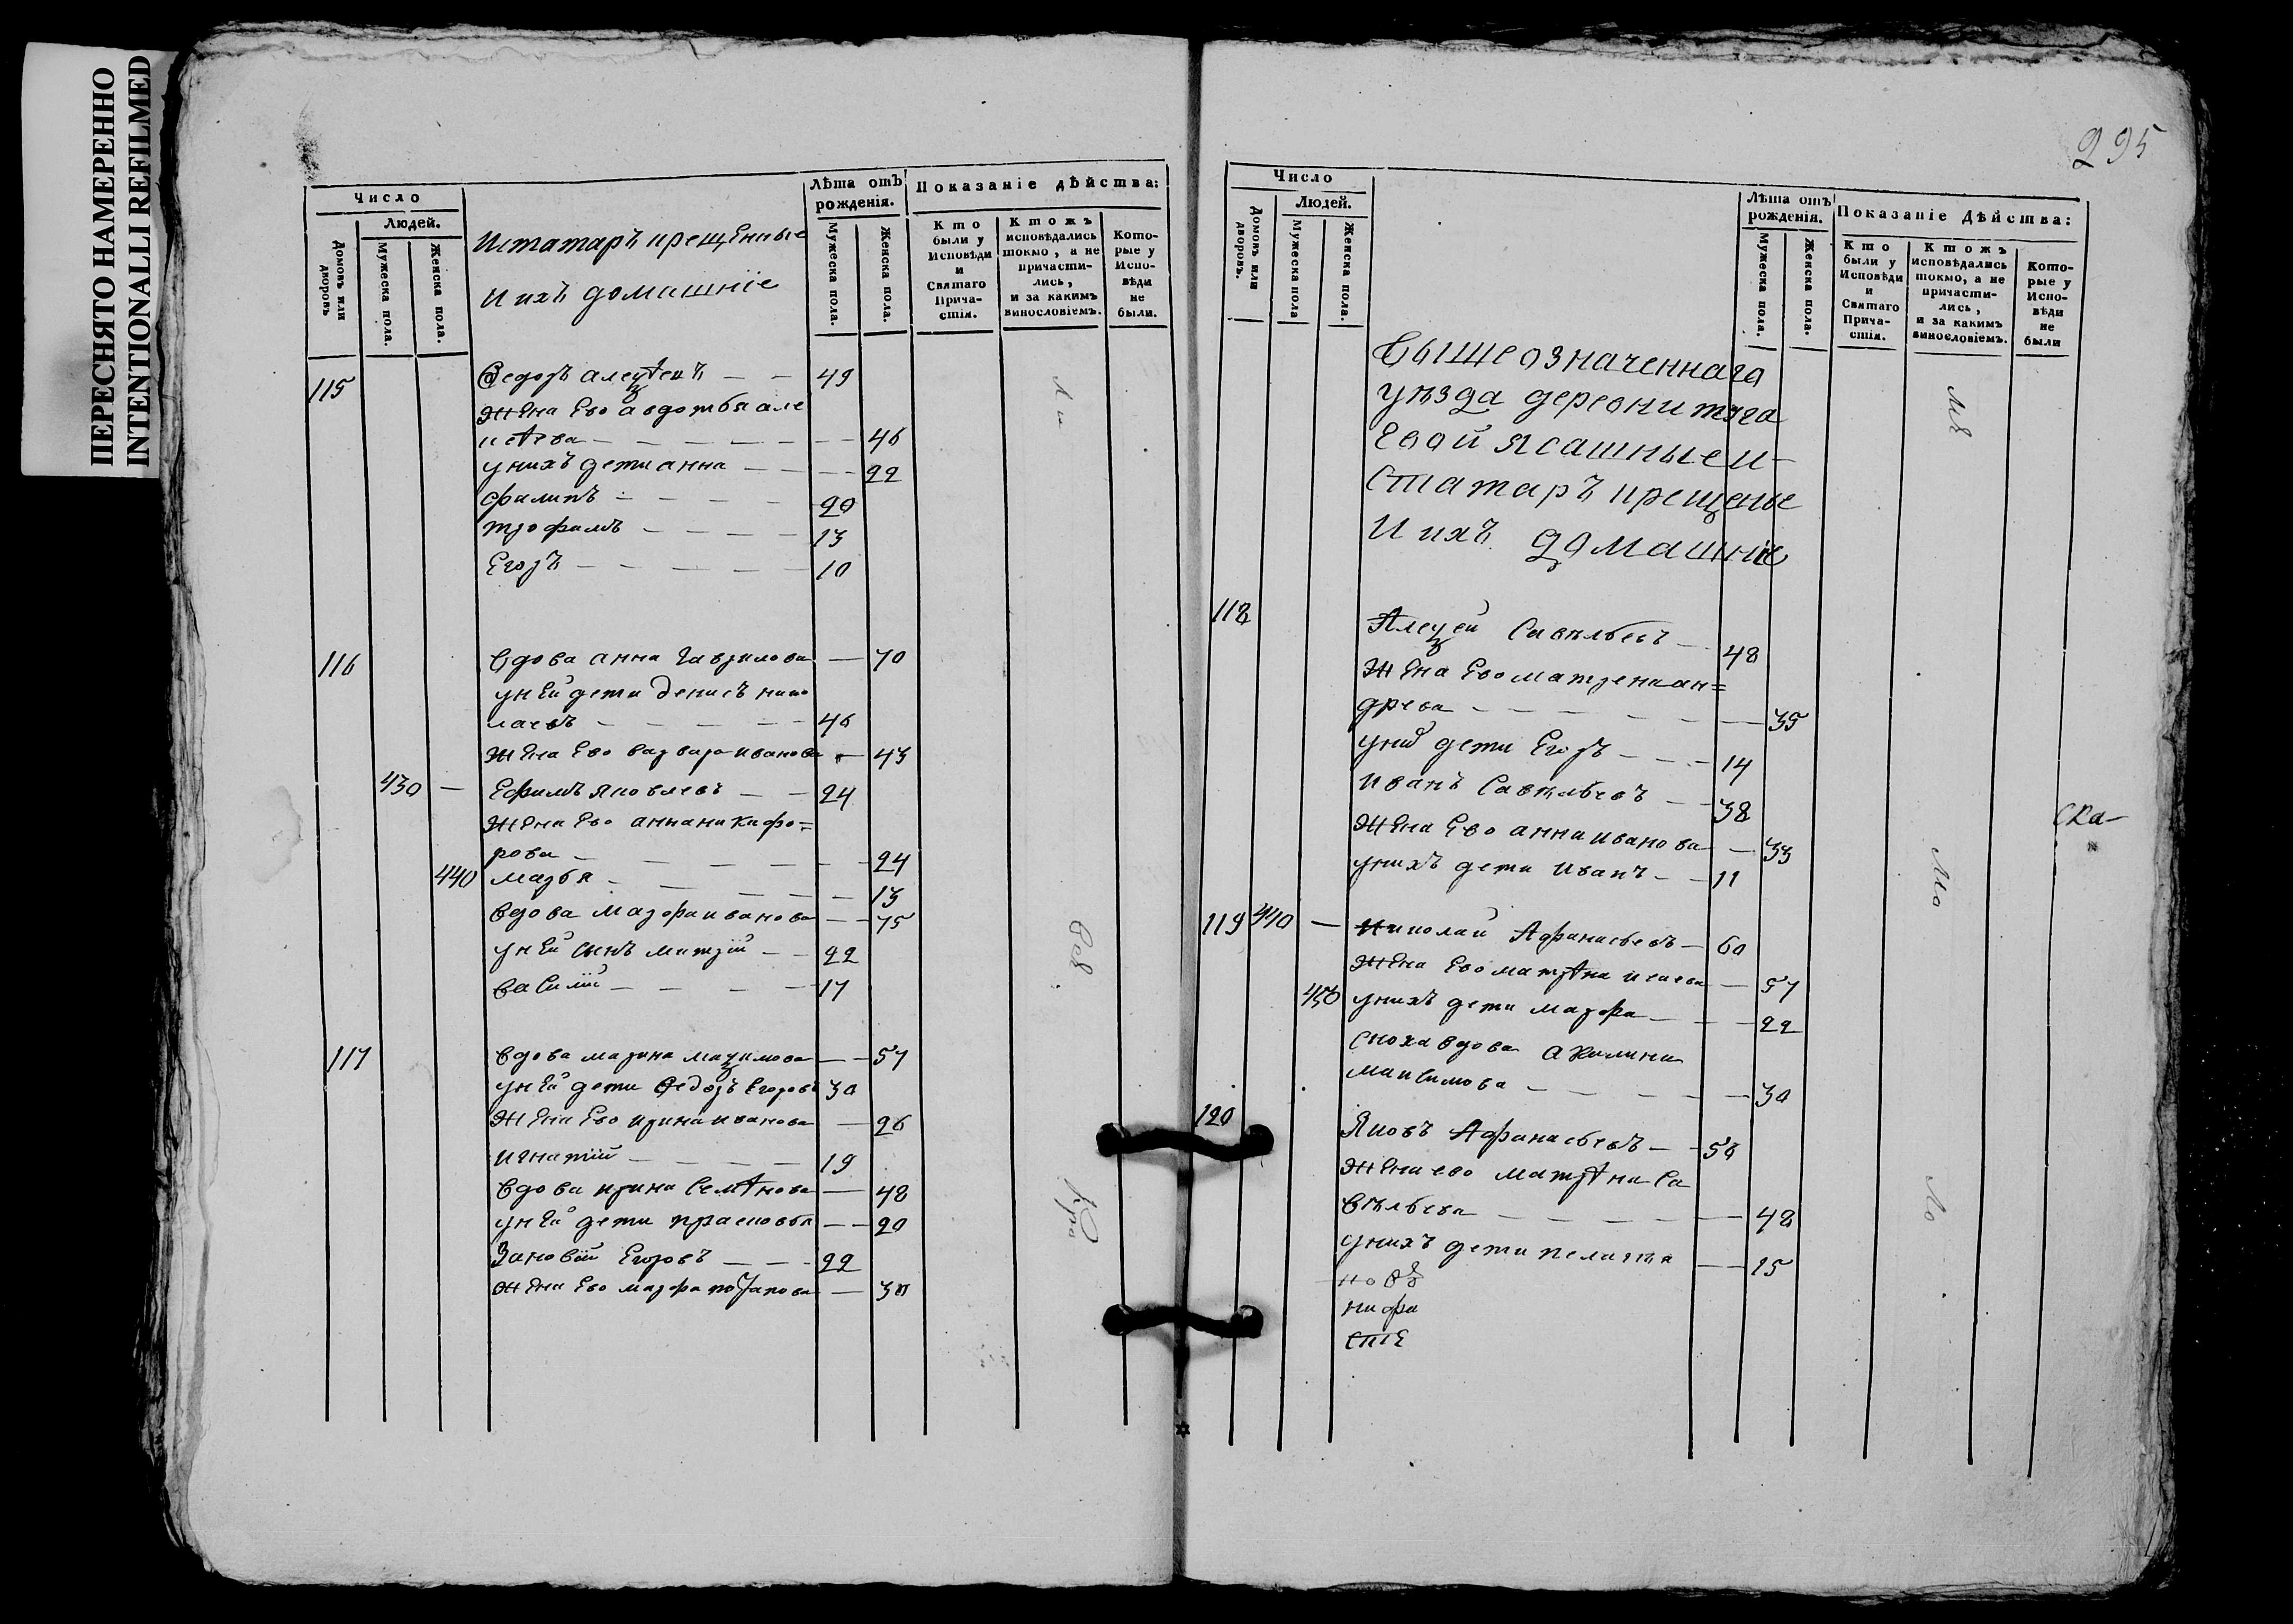 ПЕРЕСНЯТО НАМЕРЕННО
INTENTIONALLI REFILMED
Число
Людей.
Домовъ или дворовъ
Мужеска пола.
Женска пола.
Истатаръ крещенные
и ихъ домашніе
Лѣта отъ рожденія.
Мужеска пола.
Женска пола.
Показаніе дѣйства:
Кто были у Исповѣди и Святаго Прича-стія.
Ктожъ исповѣдались токмо, а не причасти-лись, и за какимъ винословіемъ.
Кото-рые у Испо-вѣди не были.
115 Федоръ алеѯеевъ — — 49
жена ево авдотья але
ксеева — — — — 46
у нихъ дети анна — — 22
филипъ — — — — 20
трофимъ — — — — 13
Егоръ — — — — 10
116 вдова анна гаврилова — 70
у ней дети денисъ нико
лаевъ — — — — 46
жена ево варвара иванова — 43
430 — Ефимъ яковлевъ — — 24
жена ево анна никифо=
рова — — — — 24
440 марья — — — — 13
вдова марфа иванова — — 75
у ней сынъ матвӥ — — 22
василӥ — — — — 17
117 вдова марина маѯимова — — 57
у ней дети Федоръ Егоровъ 30
жена ево ирина иванова — 26
игнатӥ — — — — 19
вдова ирина семенова — 48
у ней дети прасковья — — 20
Зиновӥ Егоровъ — — 22
жена ево марфа потапова — 30
295
Число
Людей.
Домовъ или дворовъ.
Мужеска пола
Женска пола.
Лѣта отъ рожденія.
Мужеска пола.
Женска пола.
Показаніе Дѣйства:
Кто были у Исповѣди и Святаго Прича-стія.
Ктожъ исповѣдались токмо, а не причасти-лись, и за какимъ винословіемъ.
Кото-рые у Испо-вѣди не были
Вышеозначеннаго
уѣзда деревни тяга
евой ясашные и
статаръ крещеные
и ихъ домашніе
118 Алеѯей Савельевъ — 48
жена ево матрена ан=
дреева — — — — 35
у нихъ дети Егоръ — — 14
иванъ Савельевъ — — 38
жена ево анна иванова — 33
у нихъ дети иванъ — — 11
119 440 — николай Афанасьевъ — 60
жена ево матрена исаева — 57
450 у нихъ дети марфа — — 22
сноха вдова акилина
максимова — — — — 30
120 Яковъ Афанасьевъ — — 56
жена ево матрена Са
вельева — — — — 48
у нихъ дети пелагея — — 15
ска-